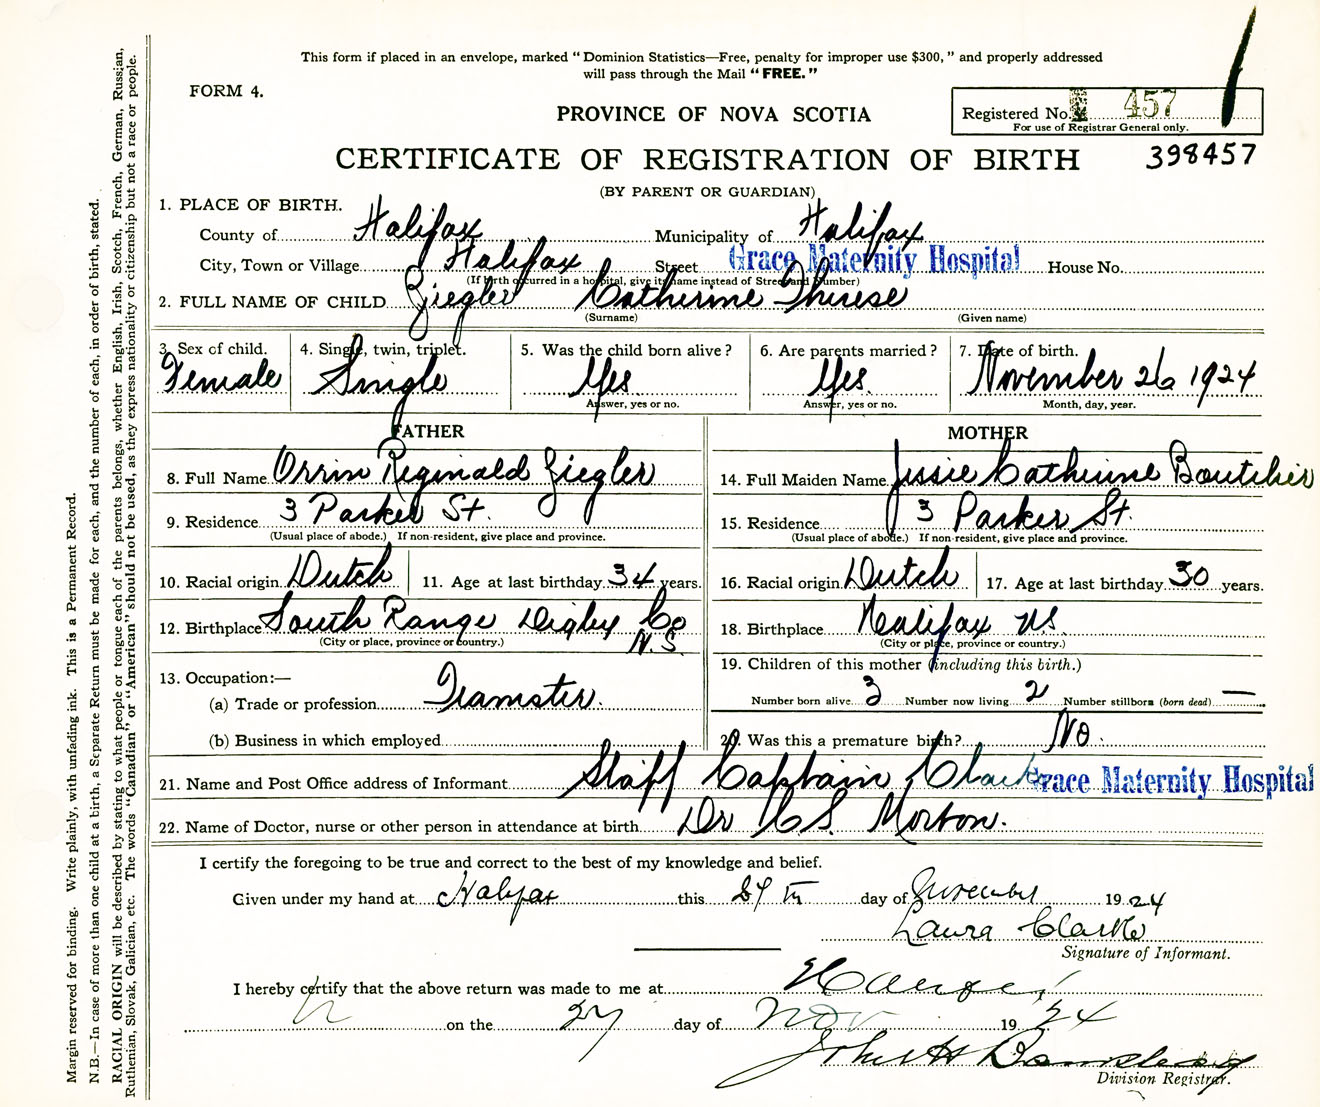 This form if placed in an envelope, marked "Dominion Statistics—Free, penalty for improper use $300," and properly addressed
will pass through the Mail "FREE."
FORM 4.
PROVINCE OF NOVA SCOTIA
Registered No. 457
For use of Registrar General only.
CERTIFICATE OF REGISTRATION OF BIRTH
398457
(BY PARENT OR GUARDIAN)
1. PLACE OF BIRTH.
County of Halifax Municipality of Halifax
City, Town or Village Halifax Street Grace Maternity Hospital House No.
(If birth occurred in a hospital, give its name instead of Street and Number)
2. FULL NAME OF CHILD Ziegler Catherine Therese
(Surname) (Given name)
3. Sex of child. 4. Single, twin, triplet. 5. Was the child born alive? 6. Are parents married? 7. Date of birth.
Female Single Yes Yes. November 26 1924
Answer, yes or no. Answer, yes or no. Month, day, year.
FATHER
8. Full Name Orrin Reginald Ziegler
9. Residence 3 Parker St.
(Usual place of abode.) If non-resident, give place and province.
10. Racial origin Dutch 11. Age at last birthday 34 years.
12. Birthplace South Range Digby Co
N.S.
(City or place, province or country.)
13. Occupation:—
(a) Trade or profession Teamster.
(b) Business in which employed
MOTHER
14. Full Maiden Name Jessie Catherine Boutilier
15. Residence 3 Parker St.
(Usual place of abode.) If non-resident, give place and province.
16. Racial origin Dutch 17. Age at last birthday 30 years.
18. Birthplace Halifax NS.
(City or place, province or country.)
19. Children of this mother (including this birth.)
Number born alive 3 Number now living 2 Number stillborn (born dead) —
20. Was this a premature birth? No.
21. Name and Post Office address of Informant Staff Captain Clarke Grace Maternity Hospital
22. Name of Doctor, nurse or other person in attendance at birth Dr C.S. Morton.
I certify the foregoing to be true and correct to the best of my knowledge and belief.
Given under my hand at Halifax this 27th day of November 1924
Laura Clarke
Signature of Informant.
I hereby certify that the above return was made to me at Halifax
on the 27 day of Nov 1924
John H
Division Registrar.
Margin reserved for binding. Write plainly, with unfading ink. This is a Permanent Record.
N.B.—In case of more than one child at a birth, a Separate Return must be made for each, and the number of each, in order of birth, stated.
RACIAL ORIGIN will be described by stating to what people or tongue each of the parents belongs, whether English, Irish, Scotch, French, German, Russian,
Ruthenian, Slovak, Galician, etc. The words "Canadian" or "American" should not be used, as they express nationality or citizenship but not a race or people.